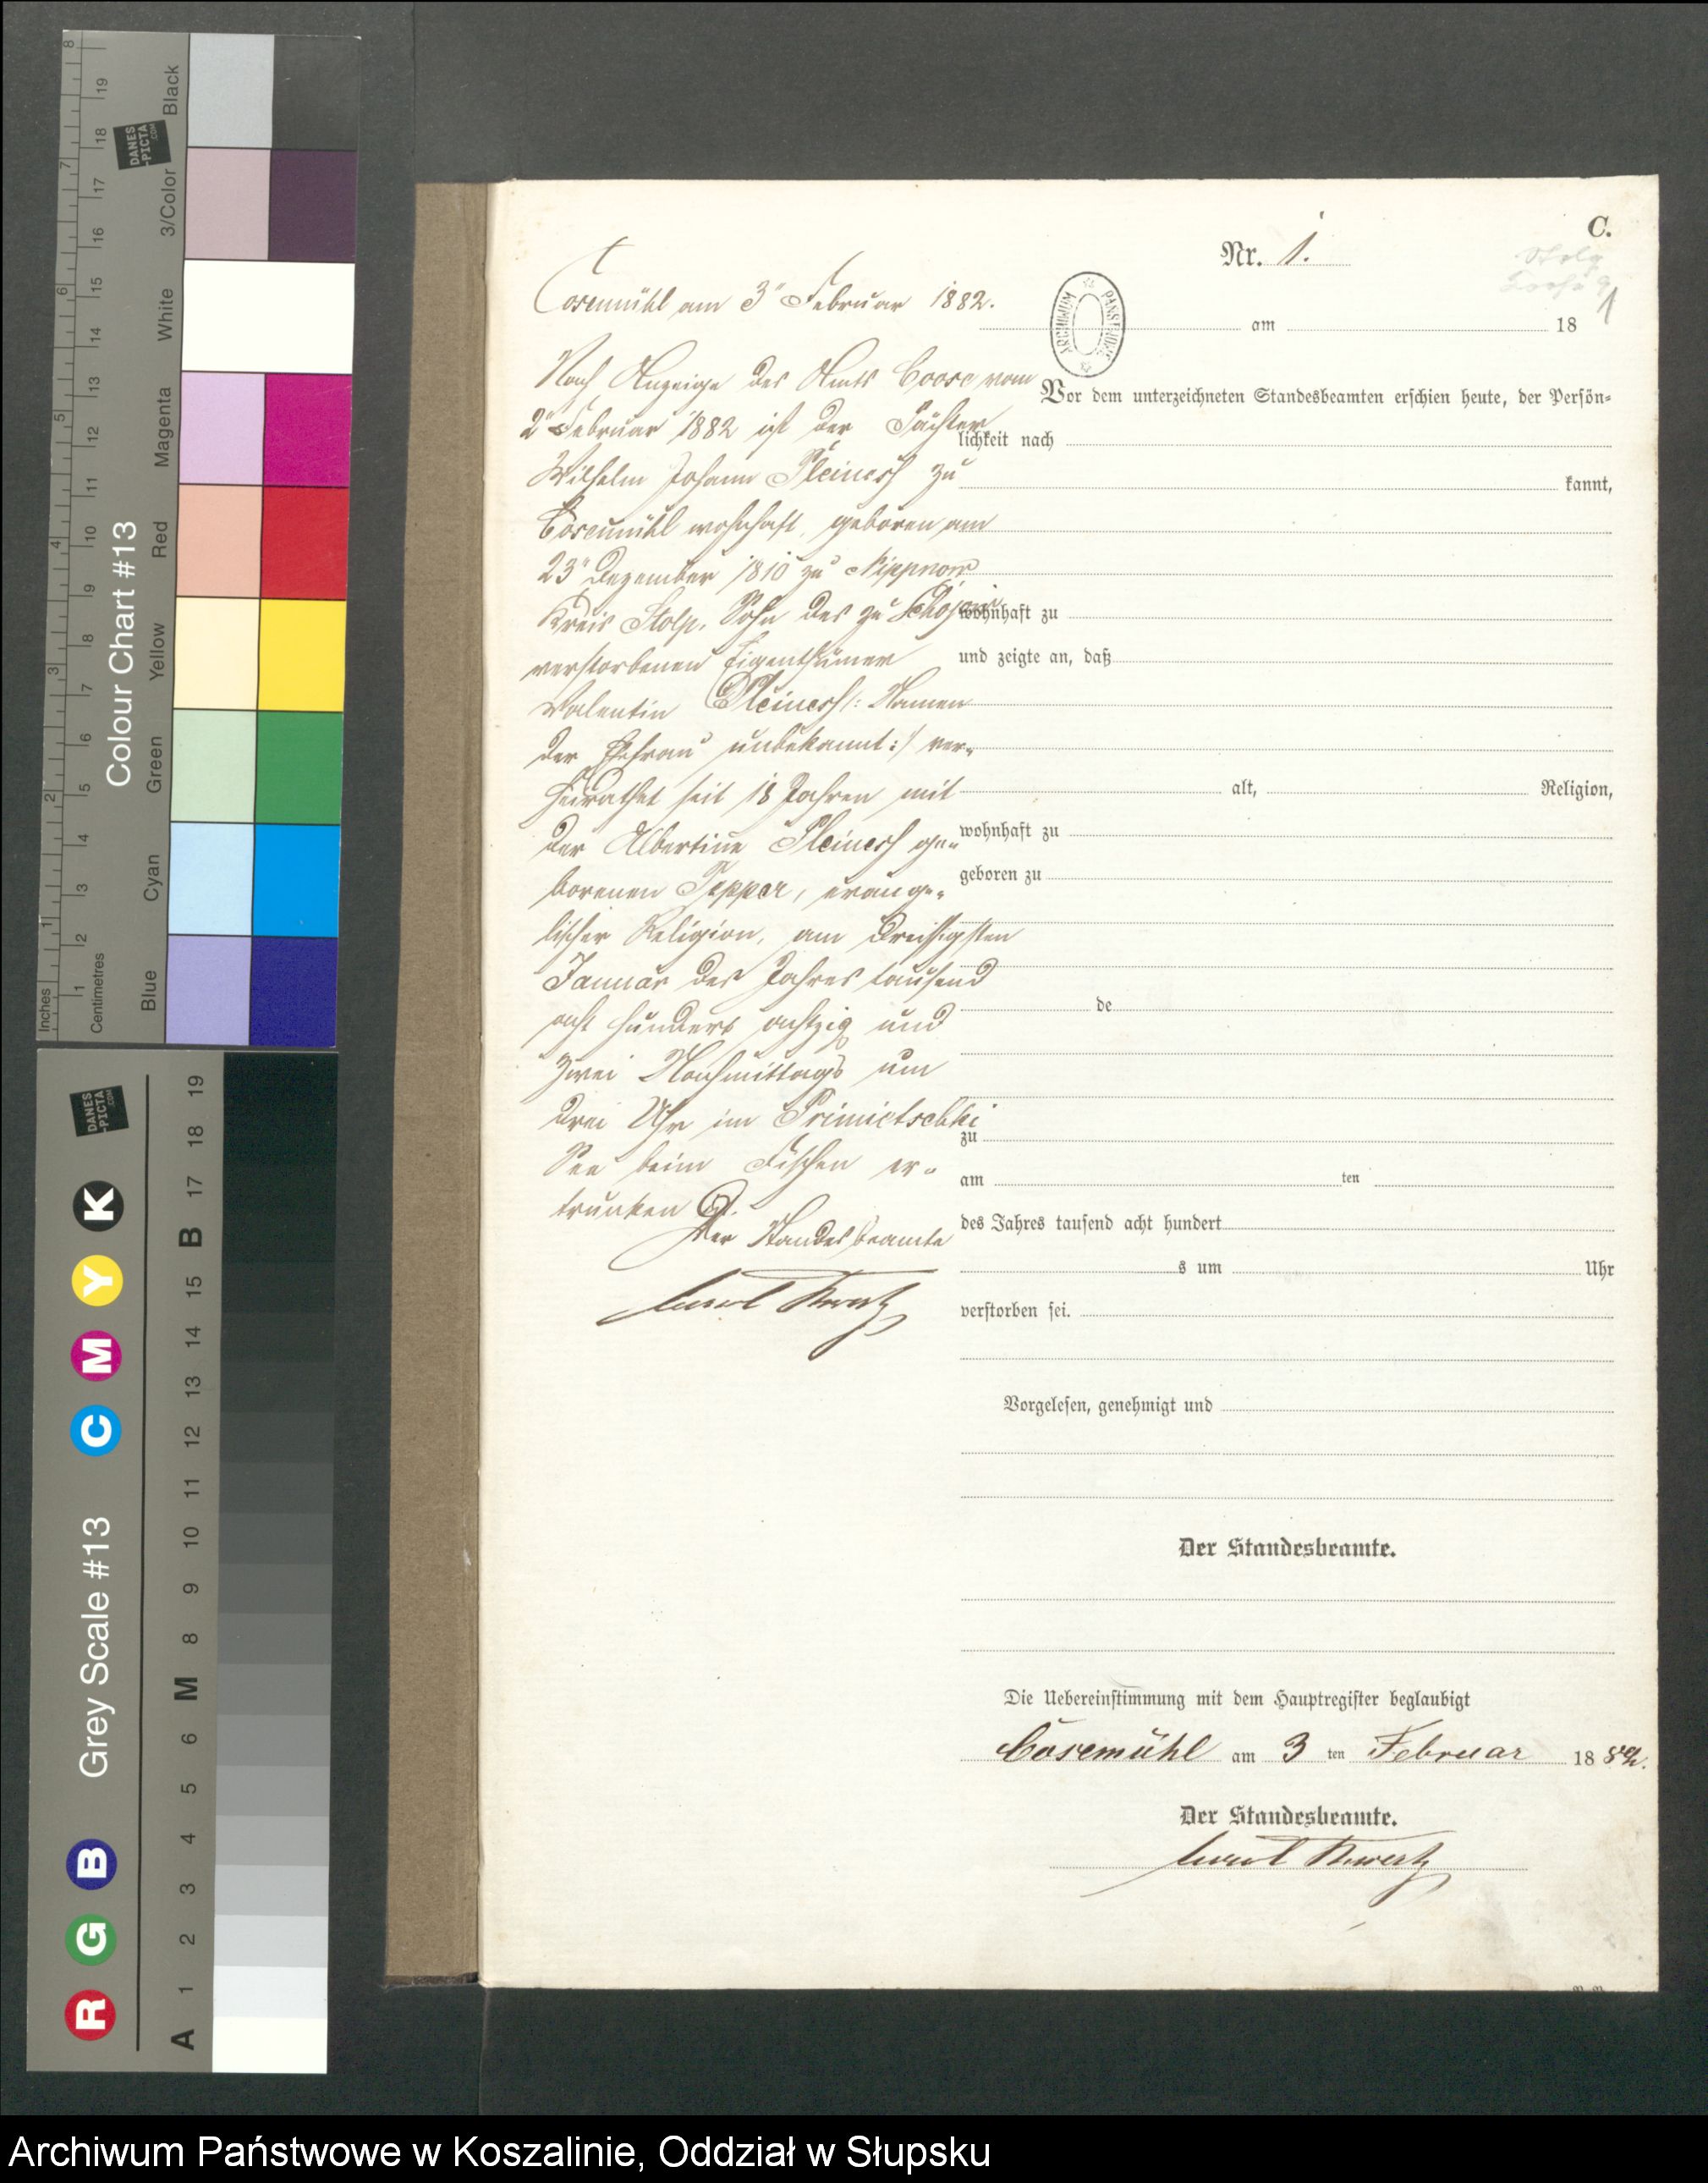 C.
Nr. 1.
1
Cosemühl am 3" Februar 1882.
am 18
ARCHIWUM PAŃSTWOWE
Nach Anzeige des Amts Coose vom
2" Februar 1882 ist der Pächter
Wilhelm Johann Pleinesh zu
Cosemühl wohnhaft, geboren am
23" Dezember 1810 zu Nippnow
Kreis Stolp, Sohn des zu
verstorbenen Eigenthümer
Valentin Pleinesh /: Namen
der Ehefrau unbekannt :/ ver-
heirathet seit 18 Jahren mit
der Albertine Pleinesh ge-
borenen Pepper, evange-
lischer Religion, am dreißigsten
Januar des Jahres tausend
acht hundert achtzig und
zwei Nachmittags um
drei Uhr im
See beim Fischen er-
trunken.
Der Standesbeamte
Vor dem unterzeichneten Standesbeamten erschien heute, der Persön-
lichkeit nach
kannt,
wohnhaft zu
und zeigte an, daß
alt, Religion,
wohnhaft zu
geboren zu
de
zu
am ten
des Jahres tausend acht hundert
s um Uhr
verstorben sei.
Vorgelesen, genehmigt und
Der Standesbeamte.
Die Uebereinstimmung mit dem Hauptregister beglaubigt
Cosemühl am 3 ten Februar 18 82.
Der Standesbeamte.
Colour Chart #13
Inches
Centimetres
1 2 3 4 5 6 7 8
1 2 3 4 5 6 7 8 9 10 11 12 13 14 15 16 17 18 19
Blue Cyan Green Yellow Red Magenta White 3/Color Black
DANES
-PICTA
.COM
Grey Scale #13
R G B C M Y K
A 1 2 3 4 5 6 M 8 9 10 11 12 13 14 15 B 17 18 19
DANES
-PICTA
.COM
Archiwum Państwowe w Koszalinie, Oddział w Słupsku